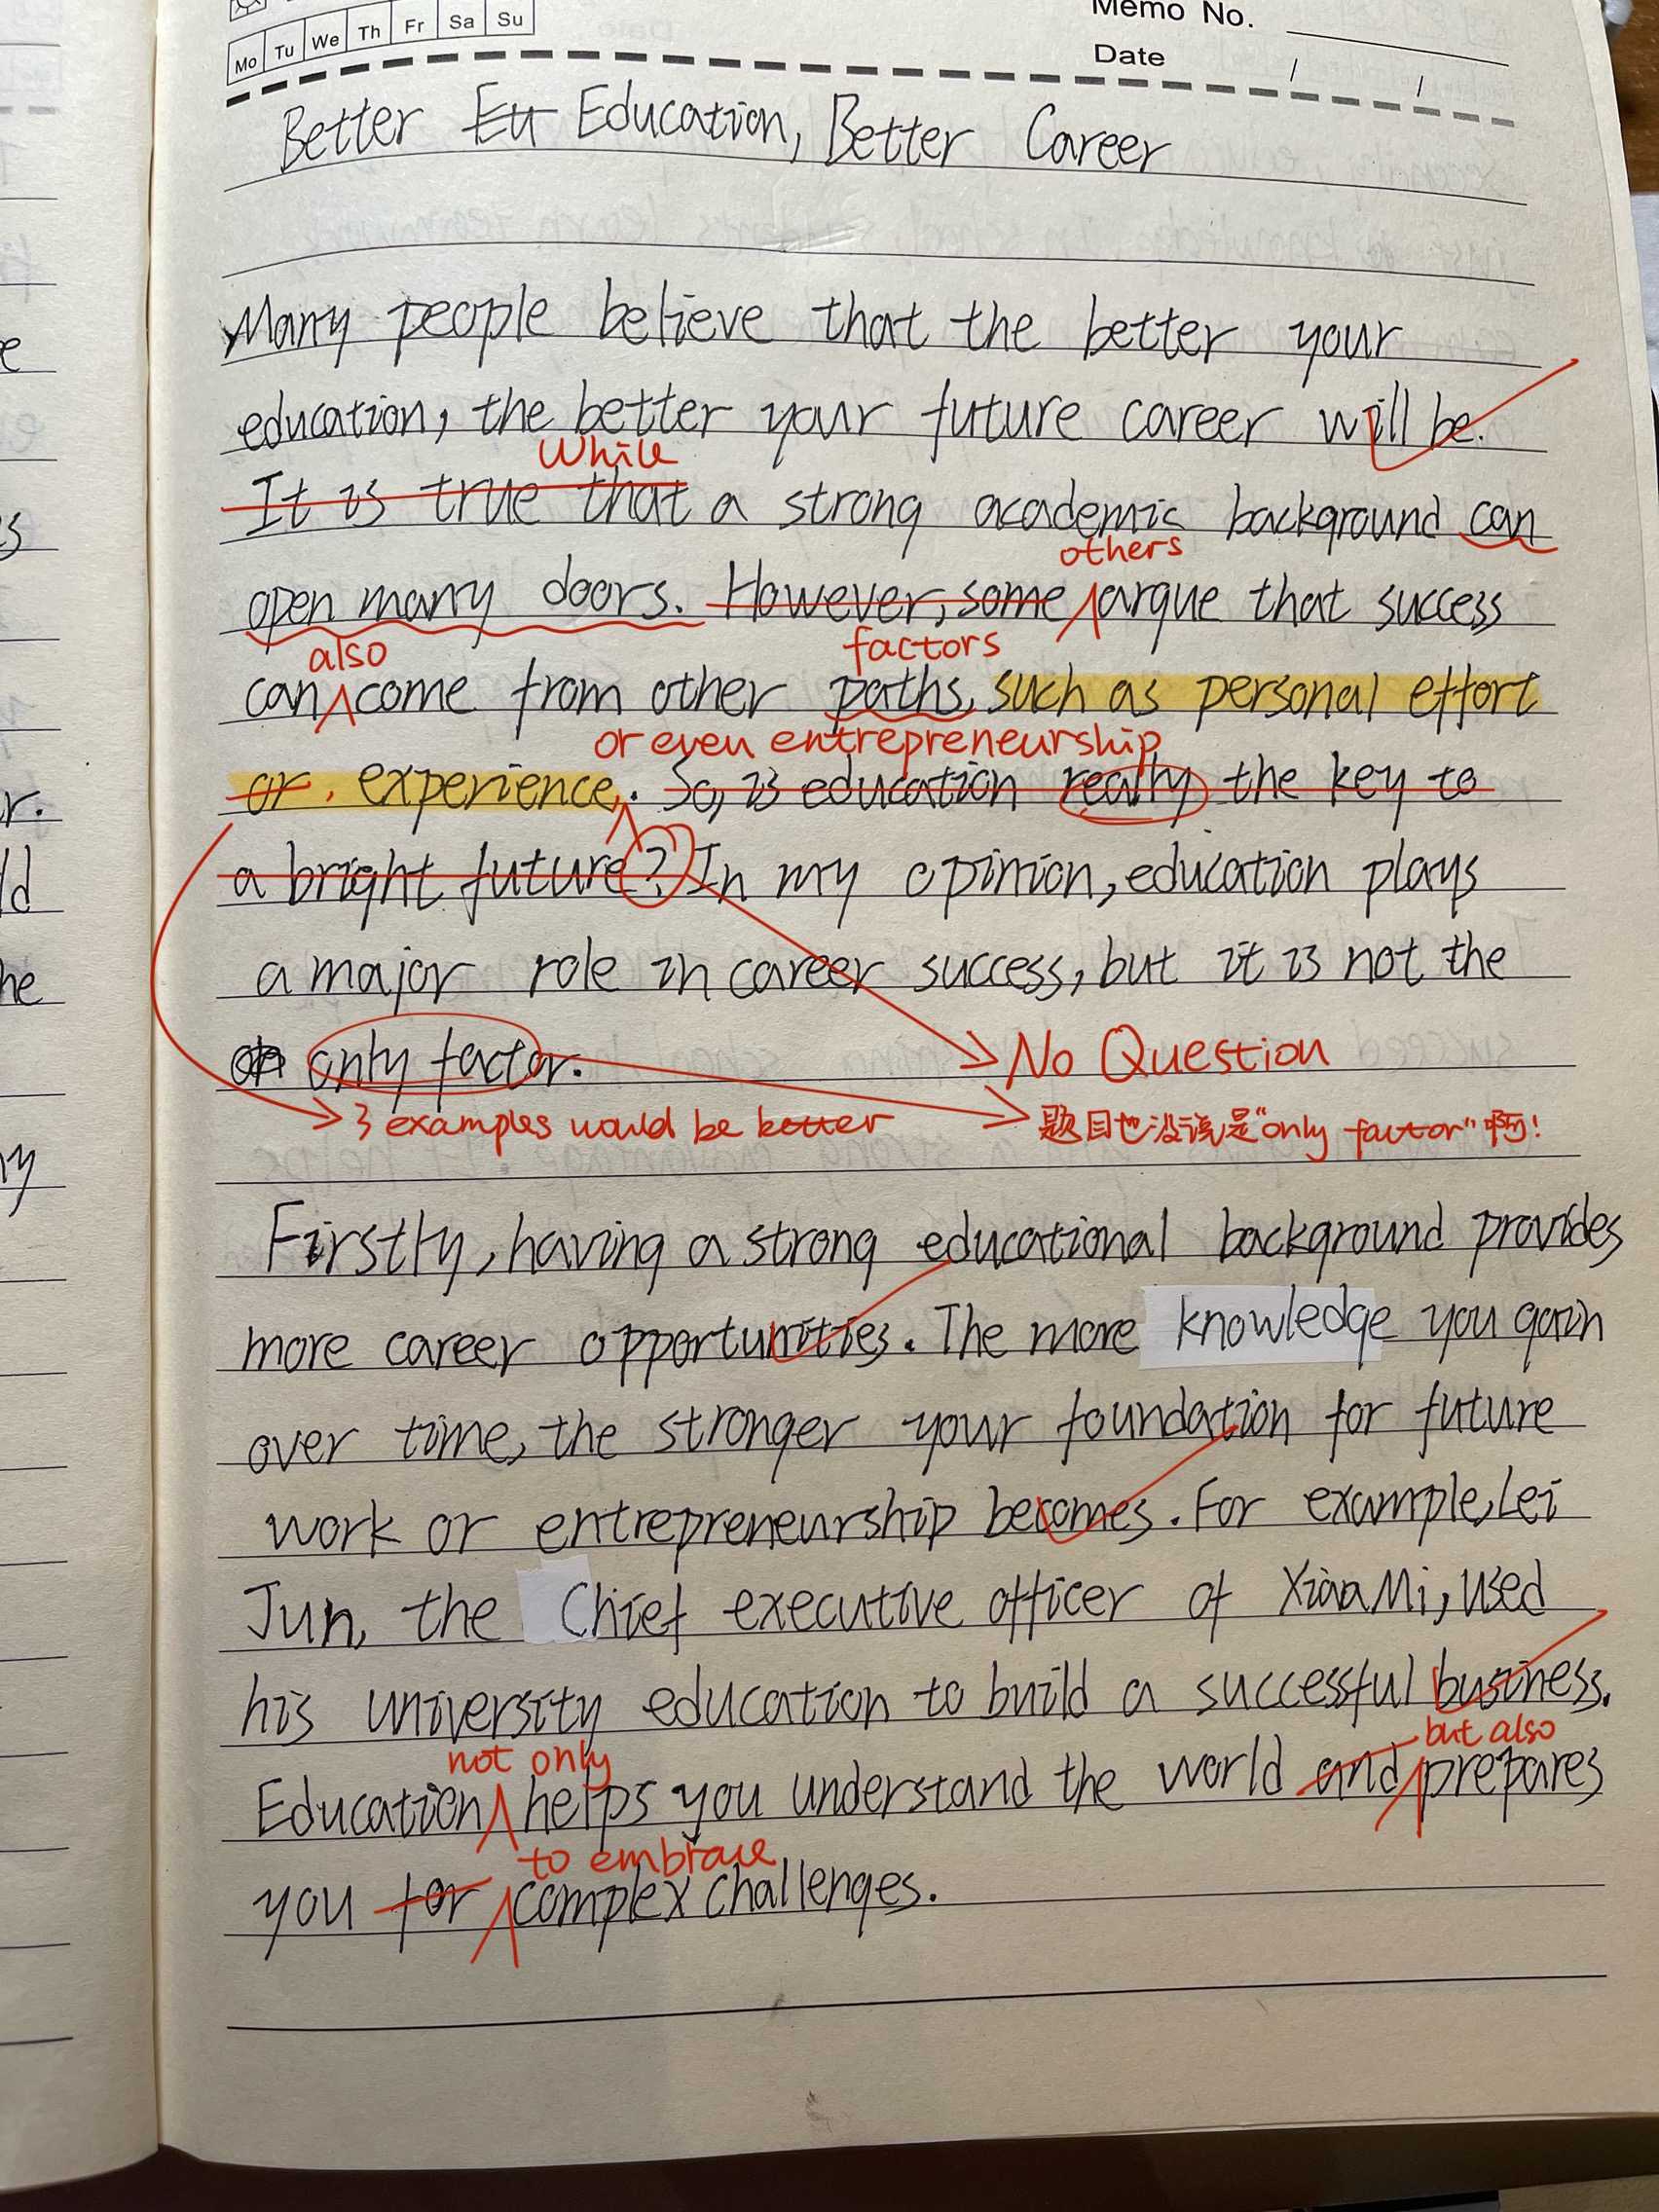 Mo Tu We Th Fr Sa Su
Memo No.
Date / /
Better Eu Education, Better Career
Many people believe that the better your
education, the better your future career will be.
While
It is true that a strong academic background can
others
open many doors. However, some argue that success
also factors
can come from other paths, such as personal effort
or even entrepreneurship
or, experience,. So, is education really the key to
a bright future? In my opinion, education plays
a major role in career success, but it is not the
only factor.
No Question
3 examples would be better
题目也没说是"only factor"啊!
Firstly, having a strong educational background provides
more career opportunities. The more knowledge you gain
over time, the stronger your foundation for future
work or entrepreneurship becomes. For example, Lei
Jun, the Chief executive officer of XiaoMi, used
his university education to build a successful business.
not only but also
Education helps you understand the world and prepares
to embrace
you for complex challenges.